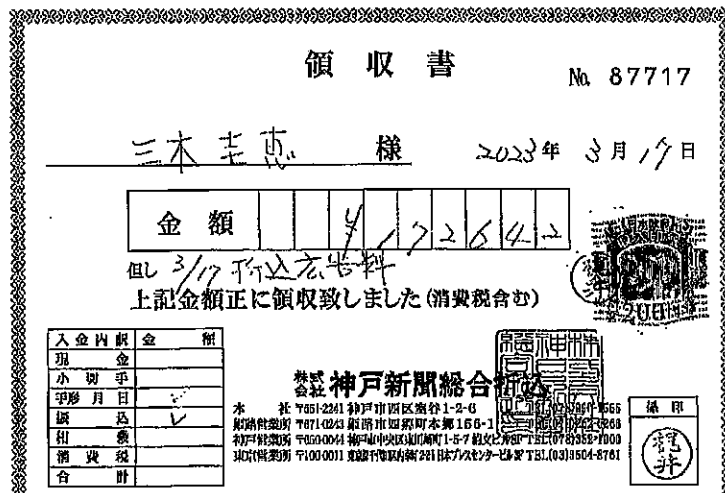 領収書
No. 87717
三木圭恵 様 2023年 3月 17日
金額 ¥172642
但し 3/17 折込広告料
上記金額正に領収致しました(消費税含む)
入金内訳 金額
現金
小切手
手形 月 日
振込 ✓
相殺
消費税
合計
株式会社 神戸新聞総合折込
本社 〒651-2241 神戸市西区室谷1-2-6
姫路営業所 〒671-0243 姫路市四郷町本郷156-1
神戸営業所 〒650-0044 神戸市中央区東川崎町1-5-7 TEL(078)352-1000
東京営業所 〒100-0011 東京都千代田区内幸町2-2-1 日本プレスセンタービル3F TEL.(03)3504-8761
係印